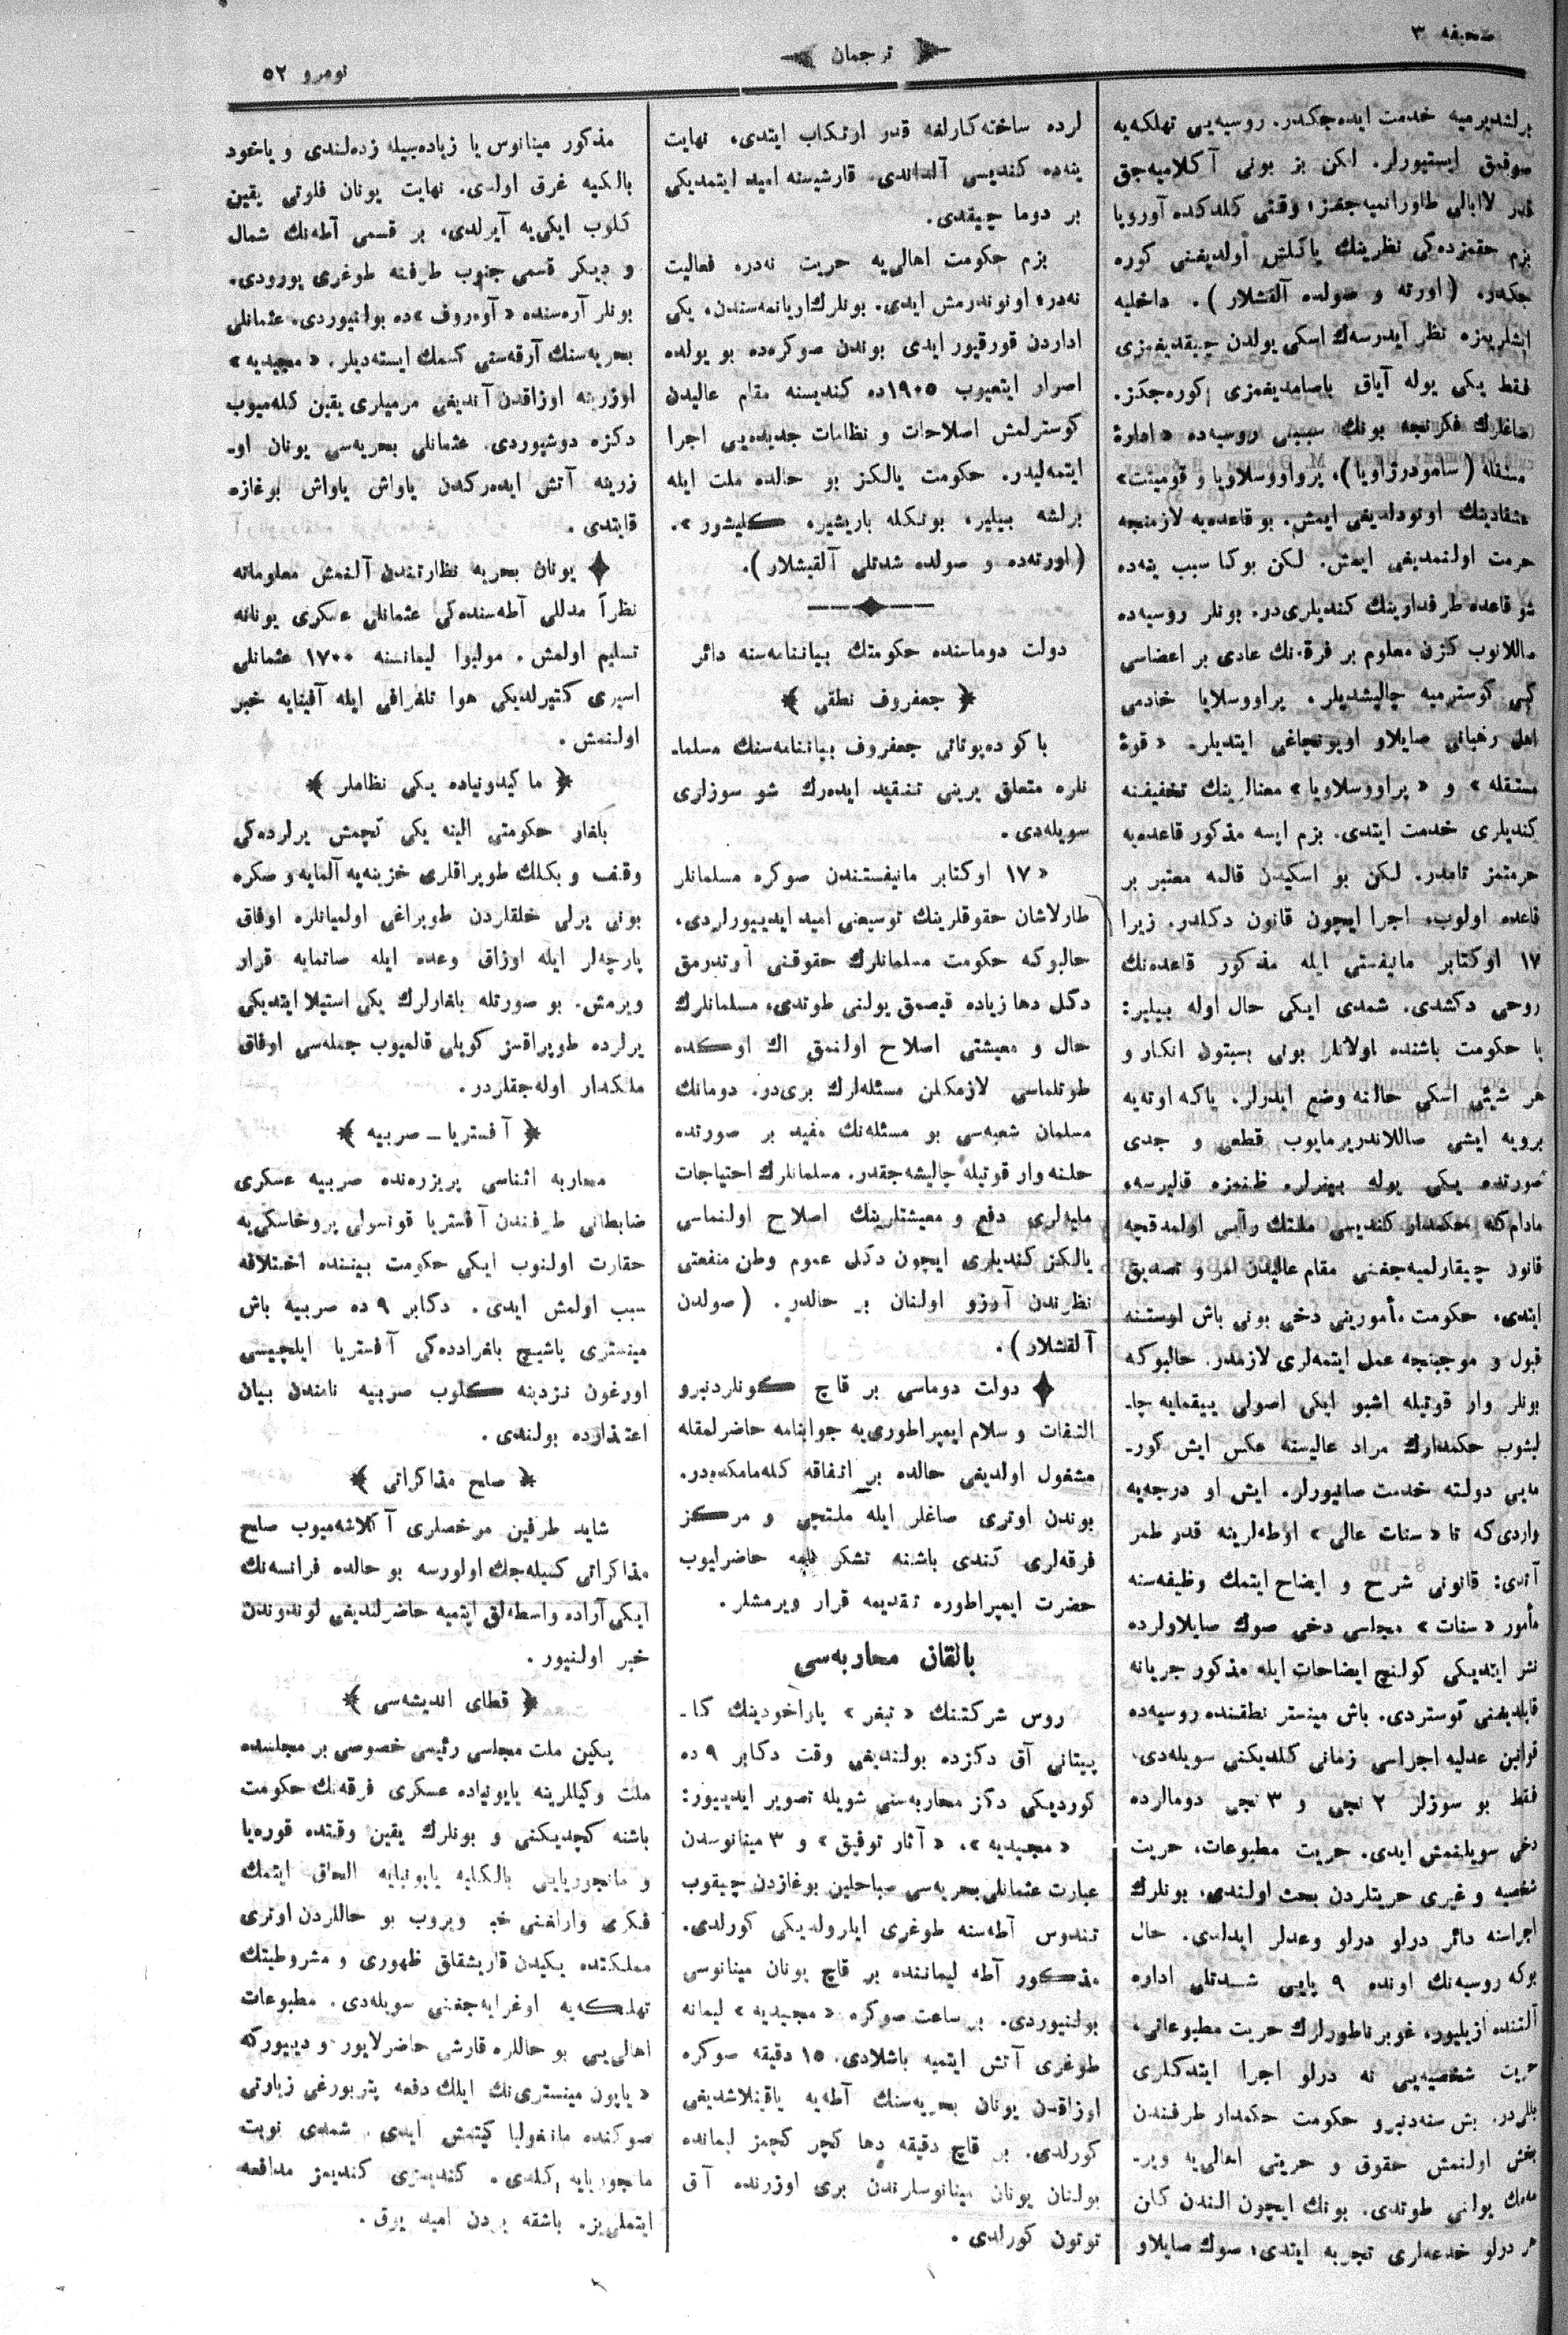 صحیفه ۳
ترجمان
نومرو ۵۲
برلشدیرمیه خدمت ایده‌جکدر. روسیه‌یی تهلکه‌یه
صوقمق ایستیورلر. لکن بز بونی آکلامیه‌جق
قدر لاابالی طاورانمیه‌جغز؛ وقتی کلدکده آوروپا
بزم حقمزده‌کی نظرینك یاکلش اولدیغنی کوره
جکدر. (اورته و صولده آلقشلار). داخلیه
ایشلریمزه نظر ایدرسه‌ك اسکی یولدن چیقدیغمزی
فقط یکی یوله آیاق باصامدیغمزی کوره‌جکز.
صاغلرك فکرنجه بونك سببی روسیه‌ده «ادارهٔ
مستقله (سامودرژاویا)، پرواووسلاویا و قومیتت»
اعتقادینك اونودلدیغی ایمش. بو قاعده‌یه لازمنجه
حرمت اولنمدیغی ایمش. لکن بوکا سبب ینه‌ده
شو قاعده طرفدارینك کندیلری‌در. بونلر روسیه‌ده
صاللانوب کزن معلوم بر فرقه‌نك عادی بر اعضاسی
کبی کوسترمیه چالیشدیلر. پراووسلایا خادمی
اهل رهبانی صایلاو اویونچاغی ایتدیلر. «قوهٔ
مستقله» و «پراووسلاویا» معنالرینك تخفیفنه
کندیلری خدمت ایتدی. بزم ایسه مذکور قاعده‌یه
حرمتمز تامدر. لکن بو اسکیدن قالمه معتبر بر
قاعده اولوب، اجرا ایچون قانون دکلدر. زیرا
۱۷ اوکتابر مانیفستی ایله مذکور قاعده‌نك
روحی دکشدی. شمدی ایکی حال اوله بیلیر:
یا حکومت باشنده اولانلر بونی بسبتون انکار و
هر شیئی اسکی حالنه وضع ایدرلر، یاکه اوته‌یه
برویه ایشی صاللاندیرمایوب قطعی و جدی
صورتده یکی یوله بینرلر. ظنمزه قالیرسه،
مادام‌که حکمدار کندیسی ملتك رأیی اولمدقچه
قانون چیقارلمیه‌جغنی مقام عالیدن امر و تصدیق
ایتدی، حکومت مأمورینی دخی بونی باش اوستنه
قبول و موجبنجه عمل ایتمه‌لری لازمدر. حالبوکه
بونلر وار قوتیله اشبو ایکی اصولی ییقمایه چا-
لیشوب حکمدارك مراد عالیسنه عکس ایش کور-
مه‌یی دولته خدمت صانیورلر. ایش او درجه‌یه
واردی‌که تا «سنات عالی» اوطه‌لرینه قدر طمر
آتدی: قانونی شرح و ایضاح ایتمك وظیفه‌سنه
مأمور «سنات» مجلسی دخی صوك صایلاولرده
نشر ایتدیکی کولنچ ایضاحات ایله مذکور جریانه
قاپلدیغنی کوستردی. باش مینستر نطقنده روسیه‌ده
قوانین عدلیه اجراسی زمانی کلدیکنی سویله‌دی.
فقط بو سوزلر ۲ نجی و ۳ نجی دومالرده
دخی سویلنمش ایدی. حریت مطبوعات، حریت
شخصیه و غیری حریتلردن بحث اولندی، بونلرك
اجراسنه دائر درلو درلو وعدلر ایدلدی. حال
بوکه روسیه‌نك اونده ۹ پایی شدتلی اداره
آلتنده ازیلیور، غوبرناطورلرك حریت مطبوعاتی،
حریت شخصیه‌یی نه درلو اجرا ایتدکلری
بللی‌در. بش سنه‌دنبرو حکومت حکمدار طرفندن
بخش اولنمش حقوق و حریتی اهالی‌یه ویر-
مه‌مك یولنی طوتدی. بونك ایچون الندن کلن
هر درلو خدعه‌لری تجربه ایتدی؛ صوك صایلاو
لرده ساخته‌کارلغه قدر ارتکاب ایتدی، نهایت
ینه‌ده کندیسی آلداندی. قارشیسنه امید ایتمدیکی
بر دوما چیقدی.
بزم حکومت اهالی‌یه حریت نه‌در، فعالیت
نه‌در، اونوندرمش ایدی. بونلرك اویانمه‌سندن، یکی
اداردن قورقیور ایدی بوندن صوکره‌ده بو یولده
اصرار ایتمیوب ۱۹۰۵ده کندیسنه مقام عالیدن
کوسترلمش اصلاحات و نظامات جدیده‌یی اجرا
ایتمه‌لیدر. حکومت یالکز بو حالده ملت ایله
برلشه بیلیر، بونکله باریشیر، کلیشور».
(اورته‌ده و صولده شدتلی آلقیشلار).
دولت دوماسنده حکومتك بیاننامه‌سنه دائر
﴿ جعفروف نطقی ﴾
باکو ده‌پوتاتی جعفروف بیاننامه‌سنك مسلما-
نلره متعلق یرینی تنقید ایده‌رك شو سوزلری
سویله‌دی.
«۱۷ اوکتابر مانیفستندن صوکره مسلمانلر
طارلاشان حقوقلرینك توسیعنی امید ایدییورلردی،
حالبوکه حکومت مسلمانلرك حقوقنی آرتدرمق
دکل دها زیاده قیصمق یولنی طوتدی، مسلمانلرك
حال و معیشتی اصلاح اولنمق اك اوکده
طوتلماسی لازمکلن مسئله‌لرك بری‌در. دومانك
مسلمان شعبه‌سی بو مسئله‌نك مفید بر صورتده
حلنه وار قوتیله چالیشه‌جقدر. مسلمانلرك احتیاجات
ملیه‌لری دفع و معیشتلرینك اصلاح اولنماسی
یالکز کندیلری ایچون دکل عموم وطن منفعتی
نظرندن آرزو اولنان بر حالدر. (صولدن
آلقشلار).
دولت دوماسی بر قاچ کونلردنبرو
التفات و سلام ایمپراطوری‌یه جوابنامه حاضرلمقله
مشغول اولدیغی حالده بر اتفاقه کله‌مامکده‌در.
بوندن اوتری صاغلر ایله ملتجی و مرکز
فرقه‌لری کندی باشنه تشکر نامه حاضرلیوب
حضرت ایمپراطوره تقدیمه قرار ویرمشلر.
بالقان محاربه‌سی
روس شرکتنك «تیغر» پاراخودینك کا-
پیتانی آق دکزده بولندیغی وقت دکابر ۹ ده
کوردیکی دکز محاربه‌سنی شویله تصویر ایدییور:
«مجیدیه»، «آثار توفیق» و ۳ مینانوسدن
عبارت عثمانلی بحریه‌سی صباحلین بوغازدن چیقوب
تندوس آطه‌سنه طوغری ایلرولدیکی کورلدی.
مذکور آطه لیماننده بر قاچ یونان مینانوسی
بولنیوردی. بر ساعت صوکره «مجیدیه» لیمانه
طوغری آتش ایتمیه باشلادی. ۱۵ دقیقه صوکره
اوزاقدن یونان بحریه‌سنك آطه‌یه یاقینلاشدیغی
کورلدی. بر قاچ دقیقه دها کچر کچمز لیمانده
بولنان یونان مینانوسلرندن بری اوزرنده آق
توتون کورلدی.
مذکور مینانوس یا زیاده‌سیله زده‌لندی و یاخود
بالکلیه غرق اولدی. نهایت یونان فلوتی یقین
کلوب ایکی‌یه آیرلدی، بر قسمی آطه‌نك شمال
و دیکر قسمی جنوب طرفنه طوغری یورودی.
بونلر آره‌سنده «آوه‌روف»ده بولنیوردی. عثمانلی
بحریه‌سنك آرقه‌سنی کسمك ایسته‌دیلر. «مجیدیه»
اوزرینه اوزاقدن آتدیغی مرمیلری یقین کله‌میوب
دکزه دوشیوردی. عثمانلی بحریه‌سی یونان او-
زرینه آتش ایده‌رکدن یاواش یاواش بوغازه
قایتدی.
یونان بحریه نظارتندن آلنمش معلوماته
نظراً مدللی آطه‌سنده‌کی عثمانلی عسکری یونانه
تسلیم اولمش. مولیوا لیمانسنه ۱۷۰۰ عثمانلی
اسیری کتیرلدیکی هوا تلغرافی ایله آفینایه خبر
اولنمش.
﴿ ماکیدونیاده یکی نظاملر ﴾
بلغار حکومتی الینه یکی کچمش یرلرده‌کی
وقف و بکلك طوپراقلری خزینه‌یه آلمایه و صکره
بونی یرلی خلقلردن طوپراغی اولمیانلره اوفاق
پارچه‌لر ایله اوزاق وعده ایله صاتمایه قرار
ویرمش. بو صورتله بلغارلرك یکی استیلا ایتدیکی
یرلرده طوپراقسز کویلی قالمیوب جمله‌سی اوفاق
ملکدار اوله‌جقلردر.
﴿ آفستریا ـ صربیه ﴾
محاربه اثناسی پریزره‌نده صربیه عسکری
ضابطانی طرفندن آفستریا قونسولی پروخاسکی‌یه
حقارت اولنوب ایکی حکومت بیننده اختلافه
سبب اولمش ایدی. دکابر ۹ ده صربیه باش
مینستری پاشیچ بلغرادده‌کی آفستریا ایلچیسی
اورغون نزدینه کلوب صربیه نامندن بیان
اعتذارده بولندی.
﴿ صلح مذاکراتی ﴾
شاید طرفین مرخصلری آکلاشه‌میوب صلح
مذاکراتی کسیله‌جك اولورسه بو حالده فرانسه‌نك
ایکی آراده واسطه‌لق ایتمیه حاضرلندیغی لوندوندن
خبر اولنیور.
﴿ قطای اندیشه‌سی ﴾
پکین ملت مجلسی رئیسی خصوصی بر مجلسده
ملت وکیللرینه یاپونیاده عسکری فرقه‌نك حکومت
باشنه کچدیکنی و بونلرك یقین وقتده قوره‌یا
و مانجوریایی بالکلیه یاپونیایه الحاق ایتمك
فکری وارلغنی خبر ویروب بو حاللردن اوتری
مملکتده یکیدن قاریشقلق ظهوری و مشروطیتك
تهلکه‌یه اوغرایه‌جغنی سویله‌دی. مطبوعات
اهالی‌یی بو حاللره قارشی حاضرلایور و دییورکه
«یاپون مینستری‌نك ایلك دفعه پتربورغی زیارتی
صوکنده مانغولیا کیتمش ایدی. شمدی نوبت
مانجوریایه کلدی. کندیمزی کندیمز مدافعه
ایتملی‌یز. باشقه یردن امید یوق.